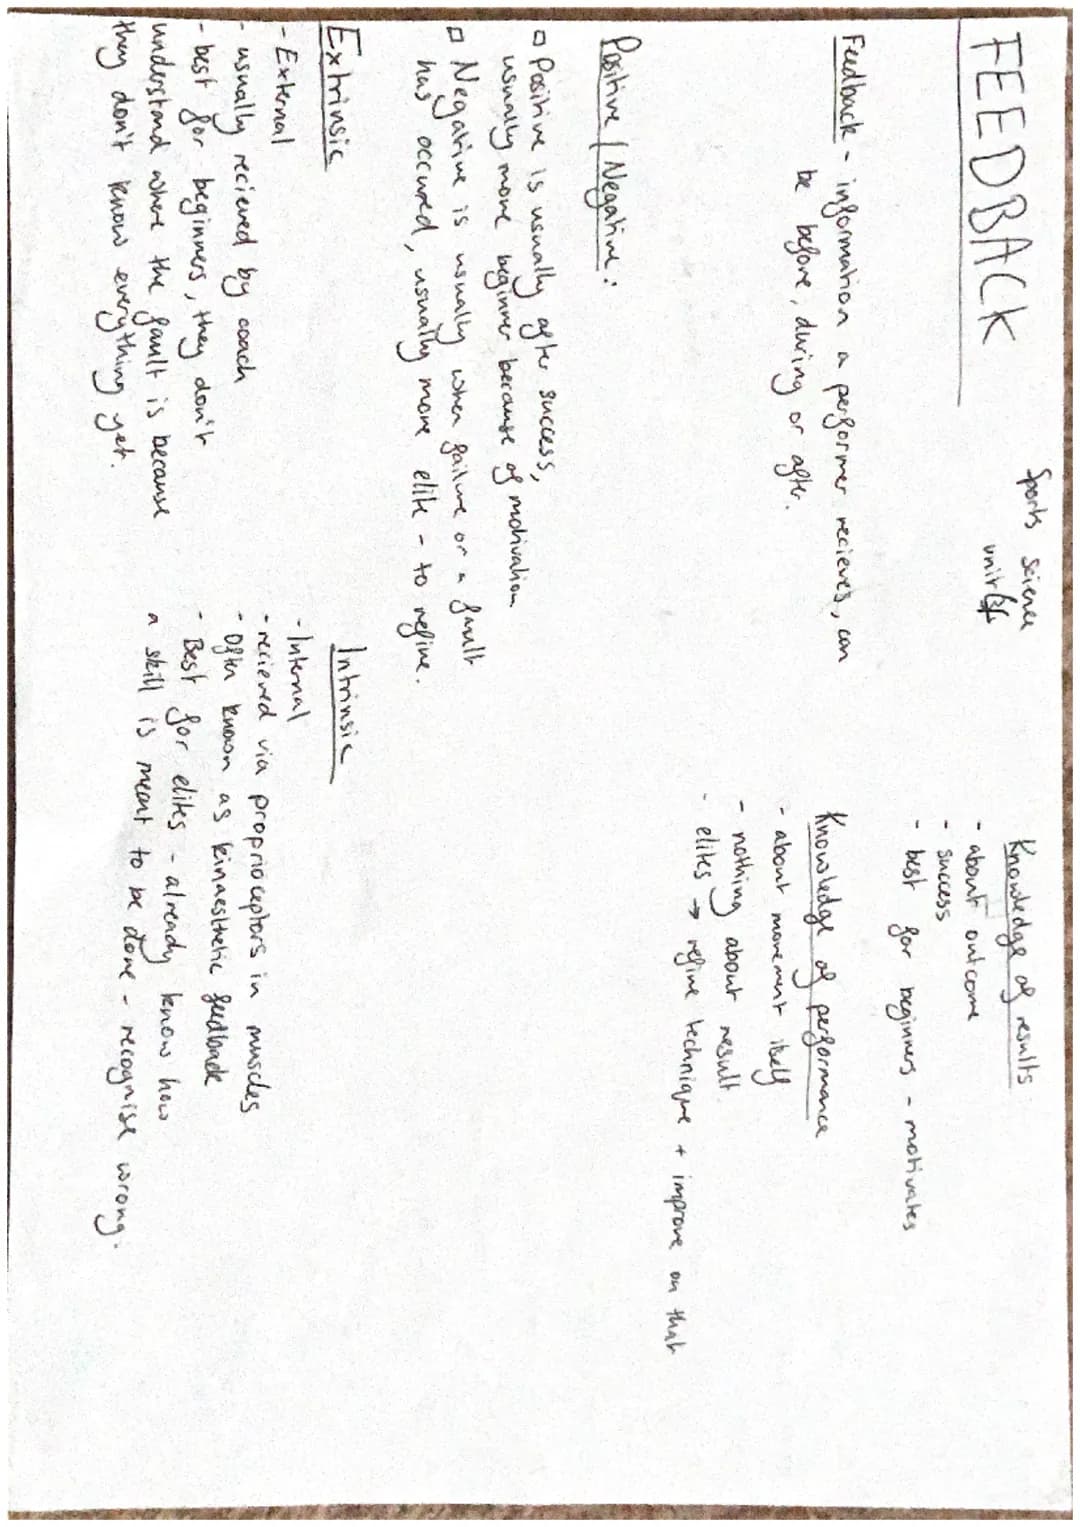 FEEDBACK
Sports science
unit
Feedback - information a performer recieves, can
be before, during or after.
Positive / Negative:
Positive is usually after success,
usually more beginner because of motivation
Negative is usually when failure or a fault
has occured, usually more elite - to refine.
Extrinsic
- External
- usually recieved by coach
- best for beginners, they don't
understand where the fault is because
they don't know everything yet.
Intrinsic
- Internal
- recieved via proprioceptors in muscles
- Often known as kinaesthetic feedback
- Best for elites - already know how
a skill is meant to be done - recognise wrong.
Knowledge of results
- about outcome
- success
- best for beginners - motivates
Knowledge of performance
- about movement itself
- nothing about result
- elites → refine technique + improve on that